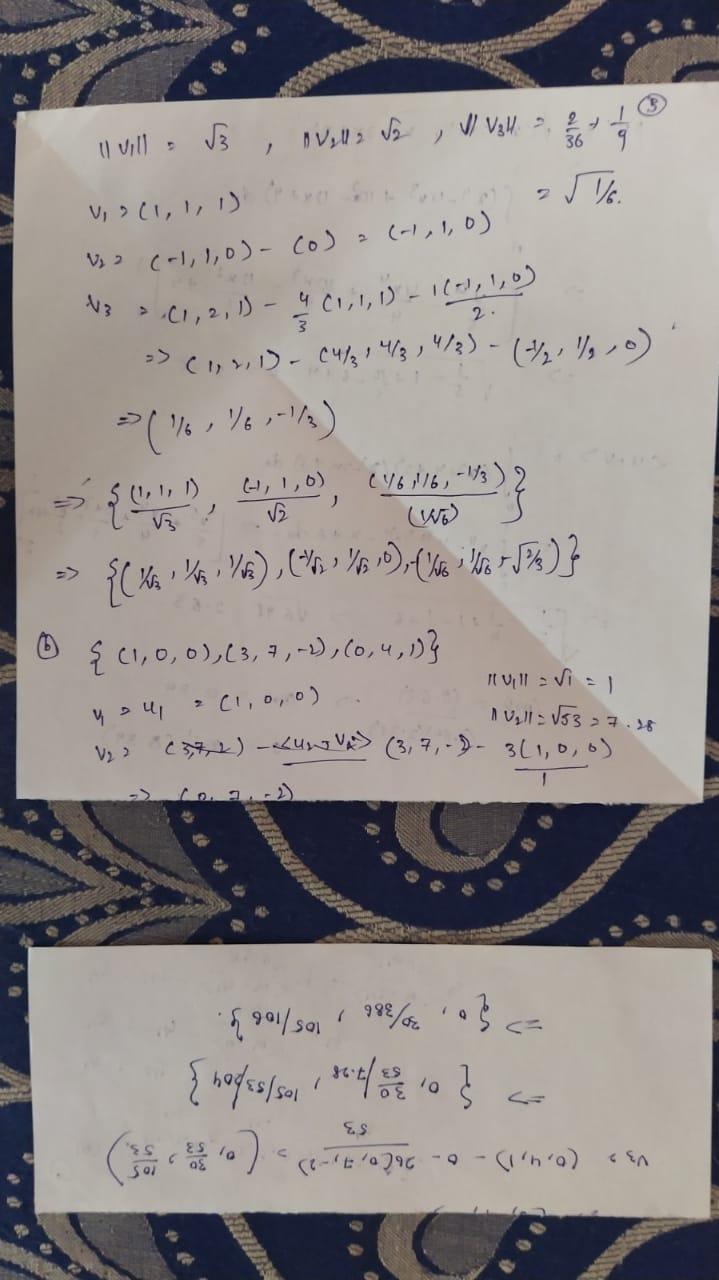 ③
||v₁|| = √3 , ||v₂|| = √2 , √|| v₃|| = 2/36 + 1/9
= √1/6.
v₁ = (1, 1, 1)
v₂ = (-1, 1, 0) - (0) = (-1, 1, 0)
v₃ = (1, 2, 1) - 4/3 (1, 1, 1) - 1(-1, 1, 0)/2.
=> (1, 2, 1) - (4/3, 4/3, 4/3) - (-1/2, 1/2, 0)
=> (1/6, 1/6, -1/3)
=> {(1, 1, 1)/√3, (-1, 1, 0)/√2, (1/6, 1/6, -1/3)/(1/√6)}
=> {(1/√3, 1/√3, 1/√3), (-1/√2, 1/√2, 0), (1/√6, 1/√6, -√2/3)}
ⓑ { (1, 0, 0), (3, 7, -2), (0, 4, 1)}
v₁ = u₁ = (1, 0, 0)
||v₁|| = √1 = 1
||v₂|| = √53 = 7.28
v₂ = (3, 7, -2) - 3(1, 0, 0)/1
=> (0, 7, -2)
v₃ = (0, 4, 1) - 0 - 26(0, 7, -2)/53 = (0, 30/53, 105/53)
=> { 0, 30/53/7.28, 105/53/204 }
=> { 0, 30/386, 105/106 }.